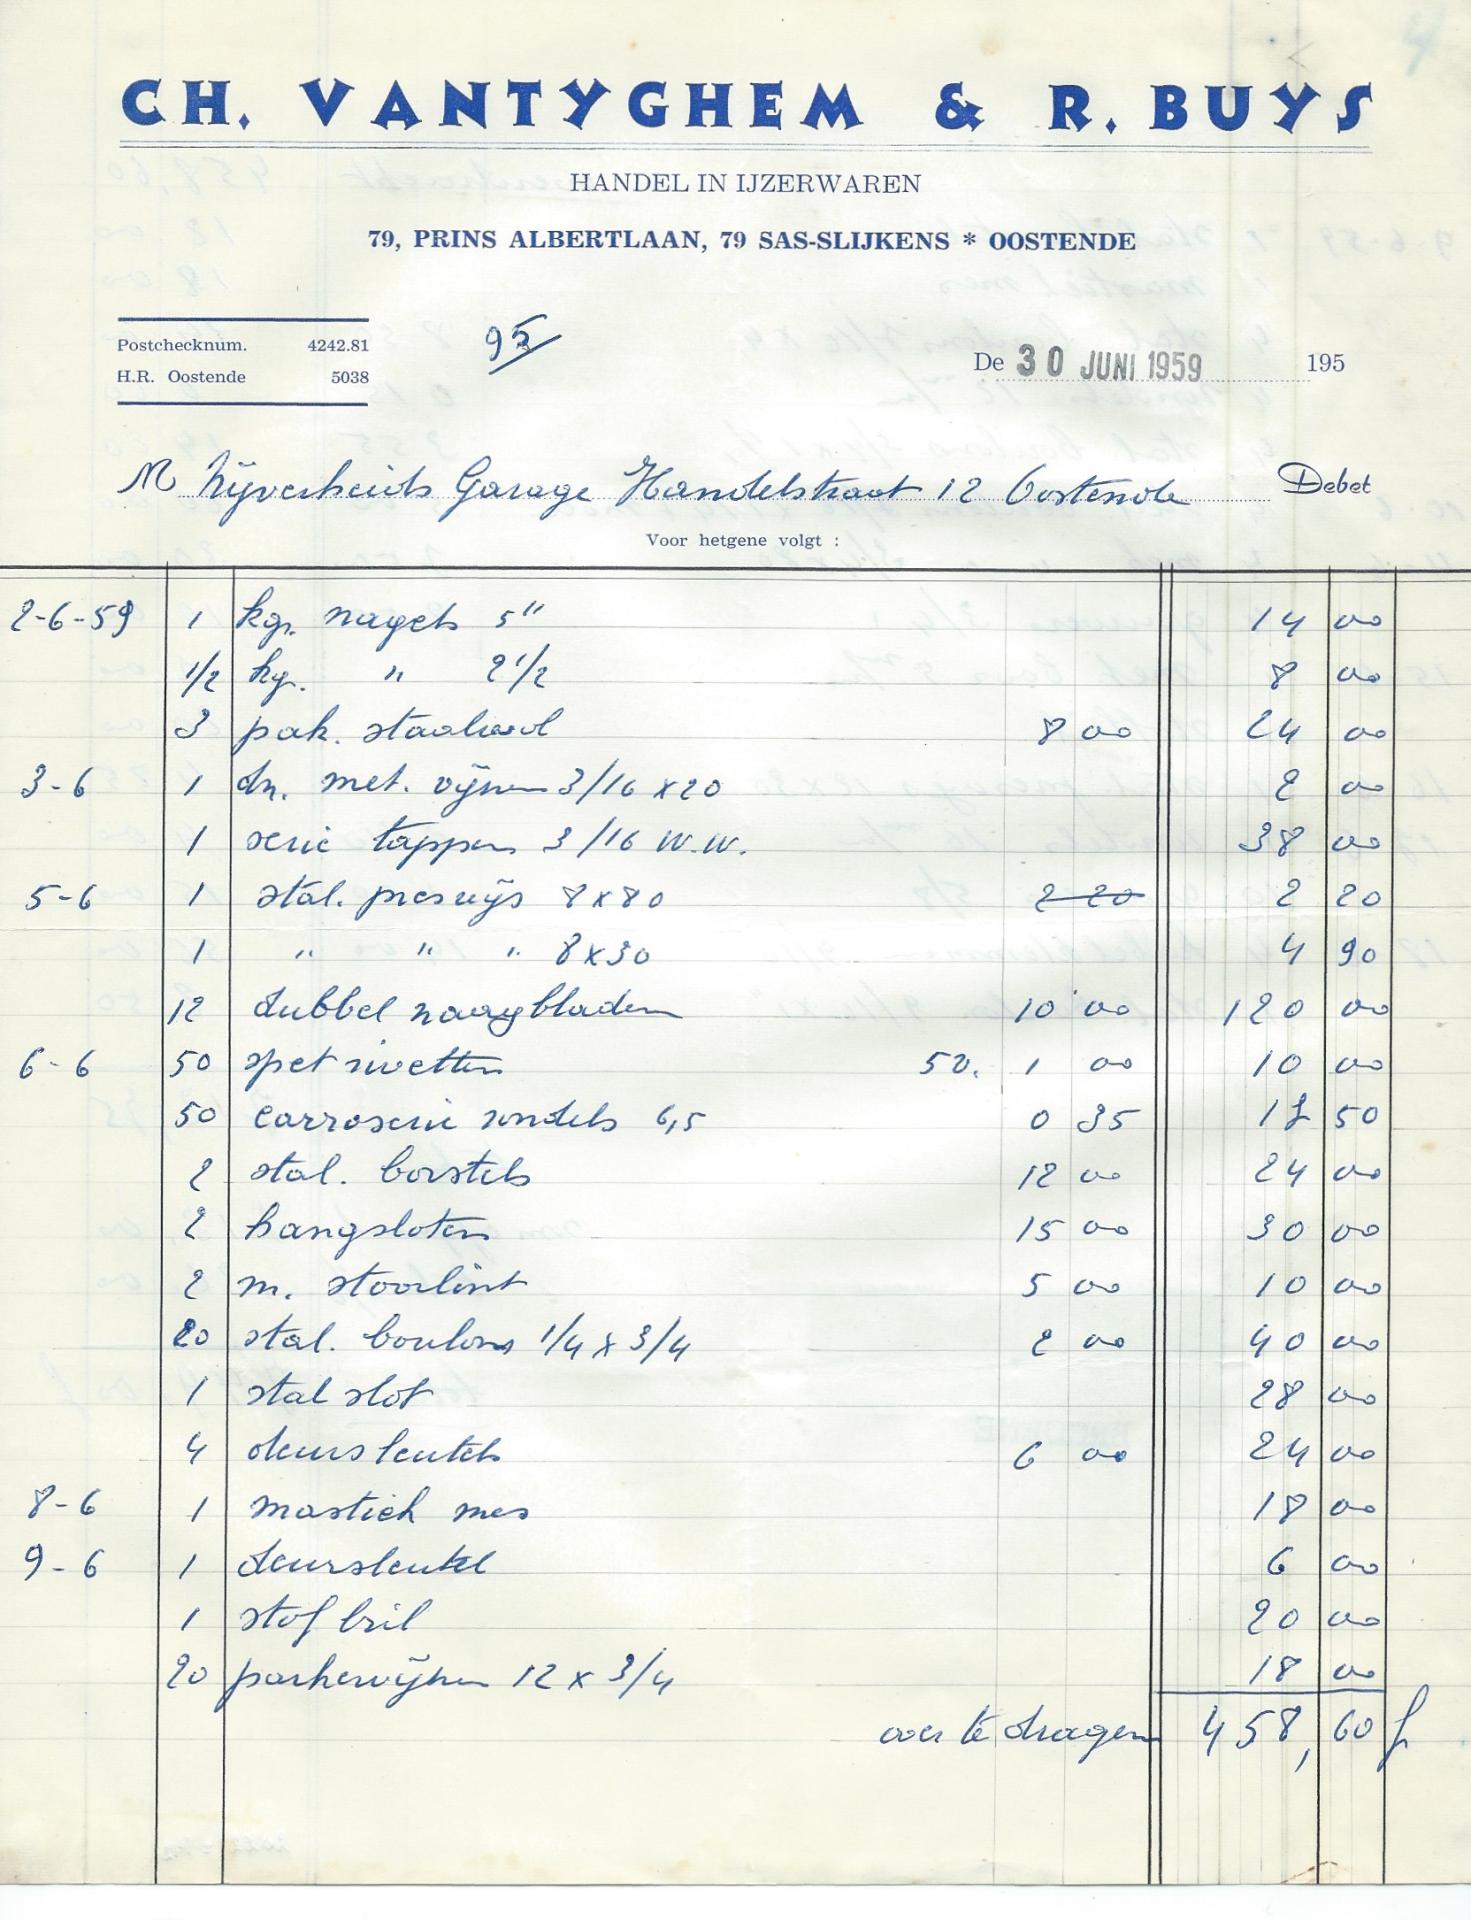 CH. VANTYGHEM & R. BUYS
HANDEL IN IJZERWAREN
79, PRINS ALBERTLAAN, 79 SAS-SLIJKENS * OOSTENDE
Postchecknum. 4242.81
H.R. Oostende 5038
95
De 30 JUNI 1959 195
M Nijverheids Garage Handelstraat 12 Oostende Debet
Voor hetgene volgt :
2-6-59 1 kgr. nagels 5" 14 00
1/2 kg. " 2 1/2 8 00
3 pak. staalwol 8 00 24 00
3-6 1 dz. met. vijzen 3/16 x 20 2 00
1 serie tappen 3/16 W.W. 38 00
5-6 1 stal. presvijs 8x80 2 20 2 20
1 " " " 8x30 4 90
12 dubbel zaagbladen 10 00 120 00
6-6 50 spet rivetten 50. 1 00 10 00
50 carroserie rondels 6,5 0 35 17 50
2 stal. borstels 12 00 24 00
2 hangsloten 15 00 30 00
2 m. stoorlint 5 00 10 00
20 stal. boulons 1/4 x 3/4 2 00 40 00
1 stal slot 28 00
4 deursleutels 6 00 24 00
8-6 1 mastiek mes 18 00
9-6 1 deursleutel 6 00
1 stofbril 20 00
20 parkervijzen 12 x 3/4 18 00
over te dragen 458,60 f